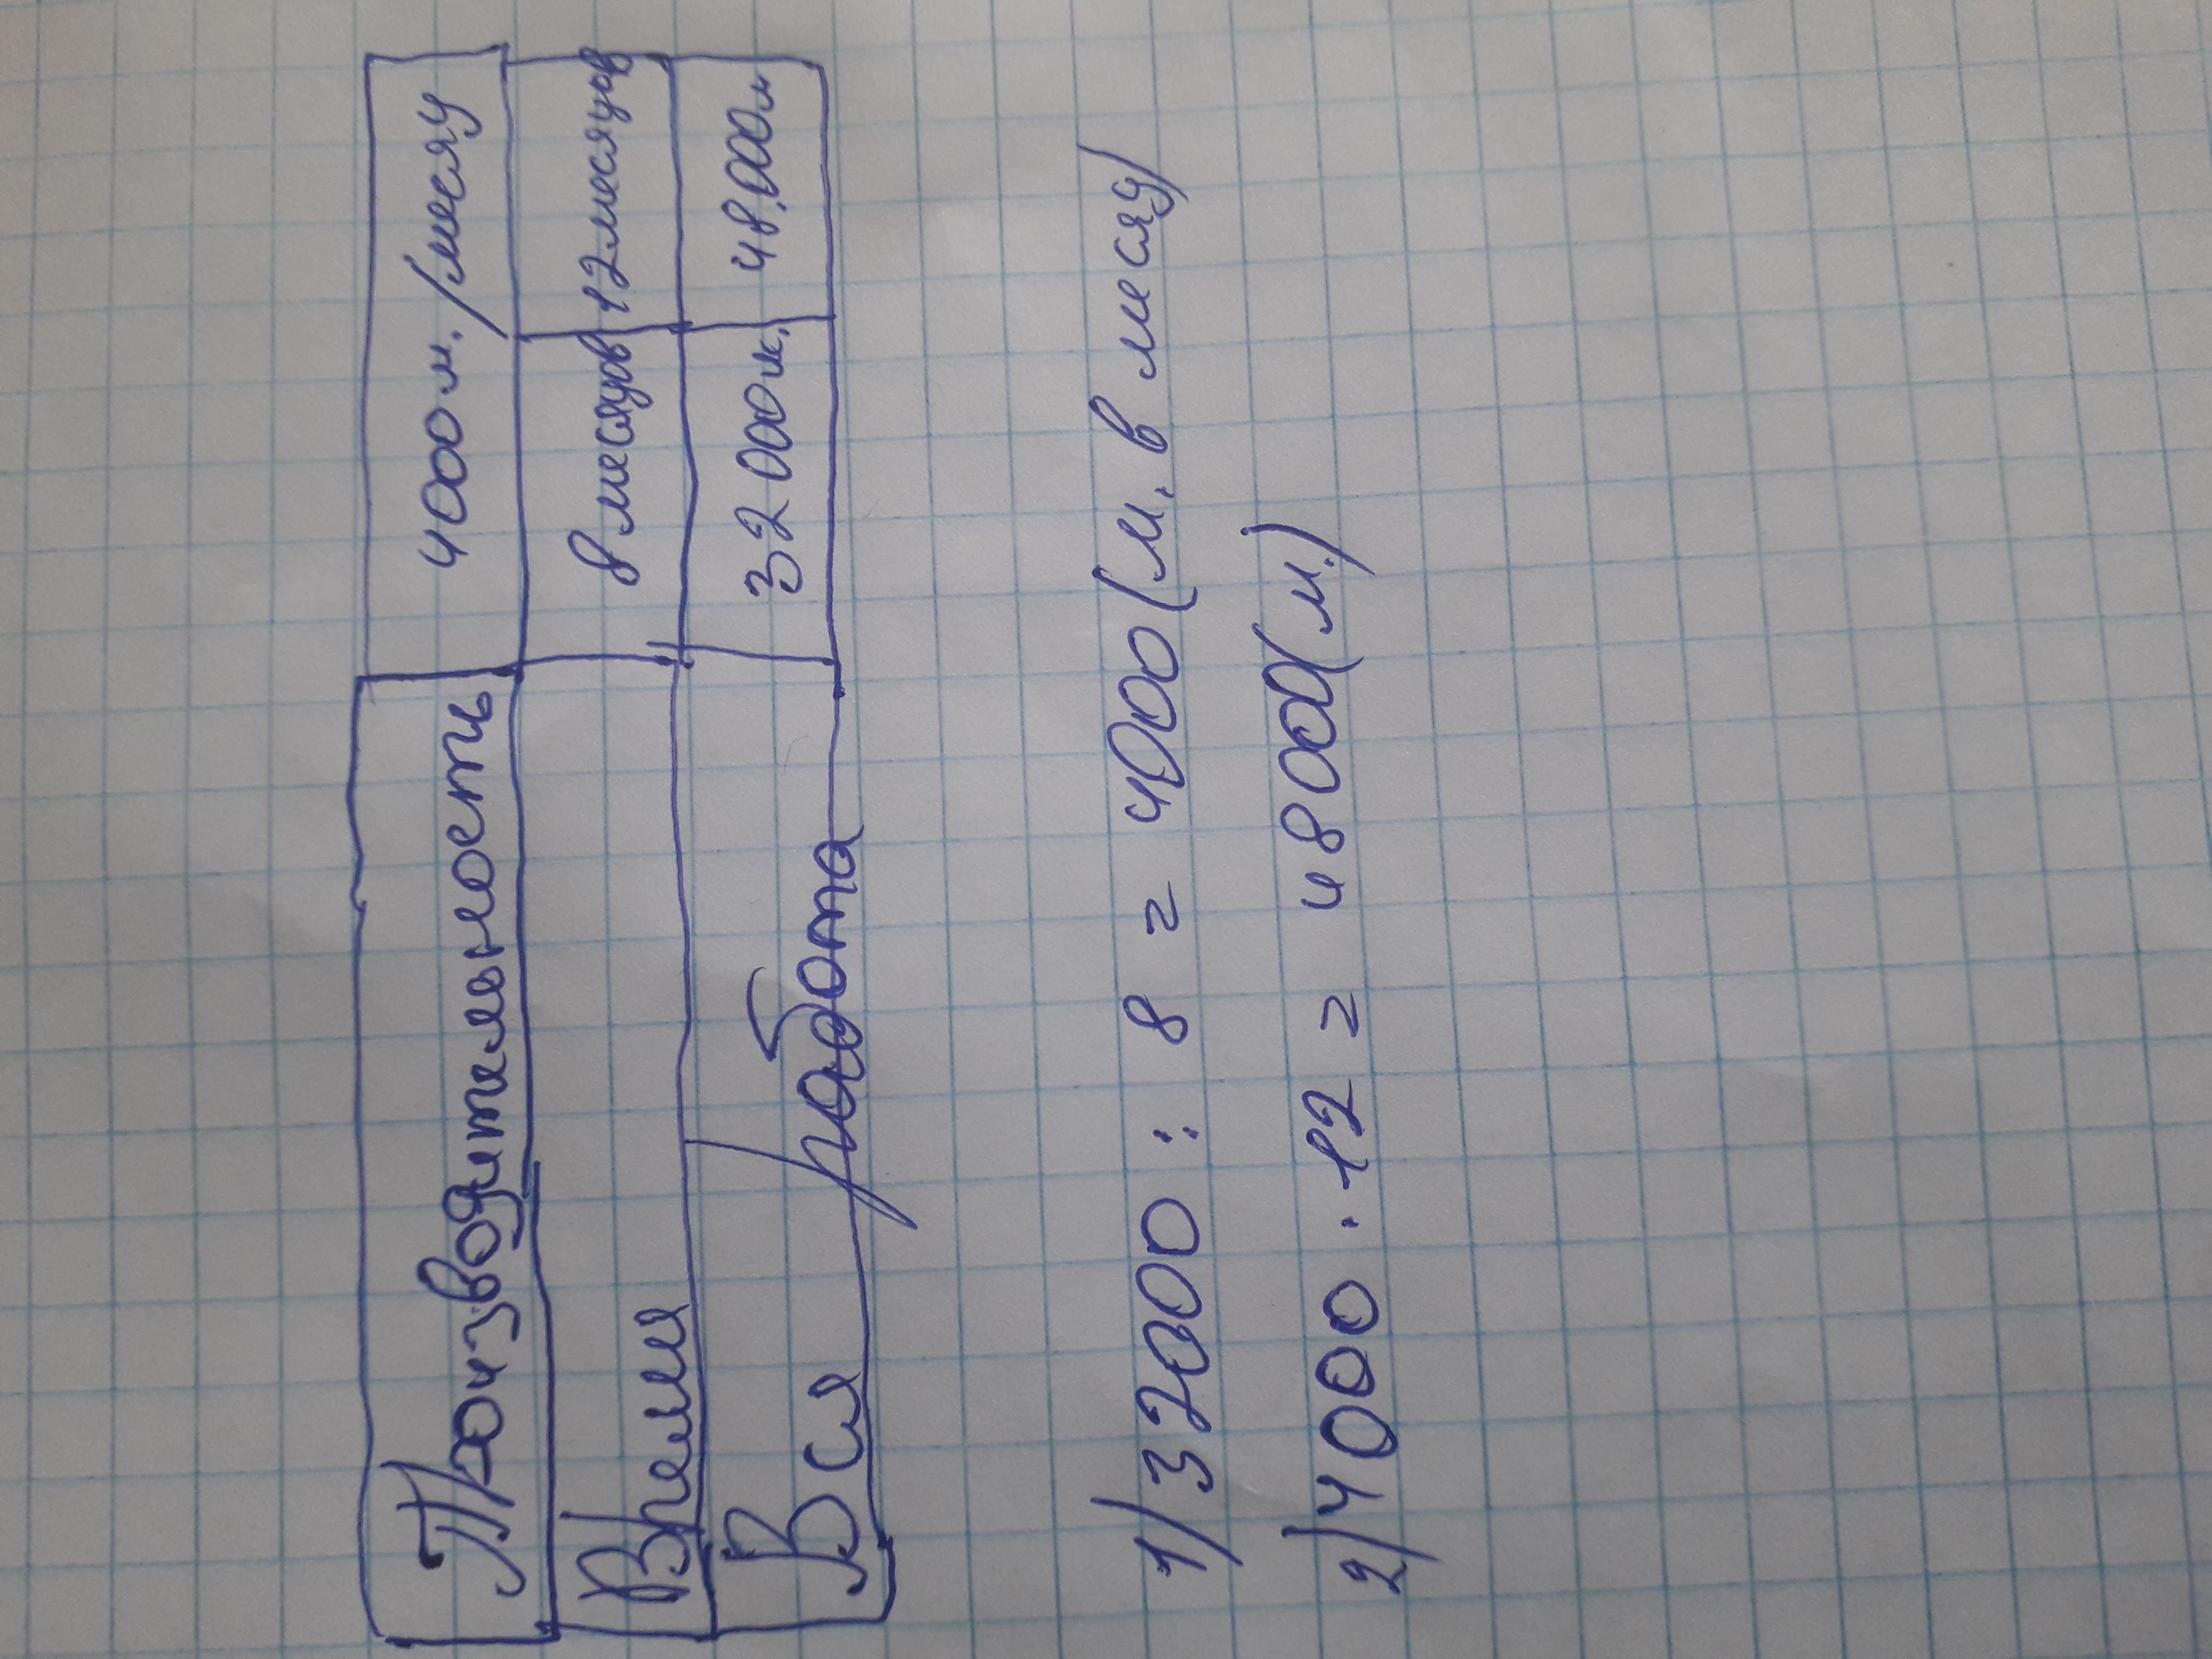 Производительность 4000 м./месяц
Время 8 месяцов 12 месяцов
Вся работа 32000 м. 48.000 м
1) 32000 : 8 = 4000 (м. в месяц)
2) 4000 · 12 = 48000 (м.)